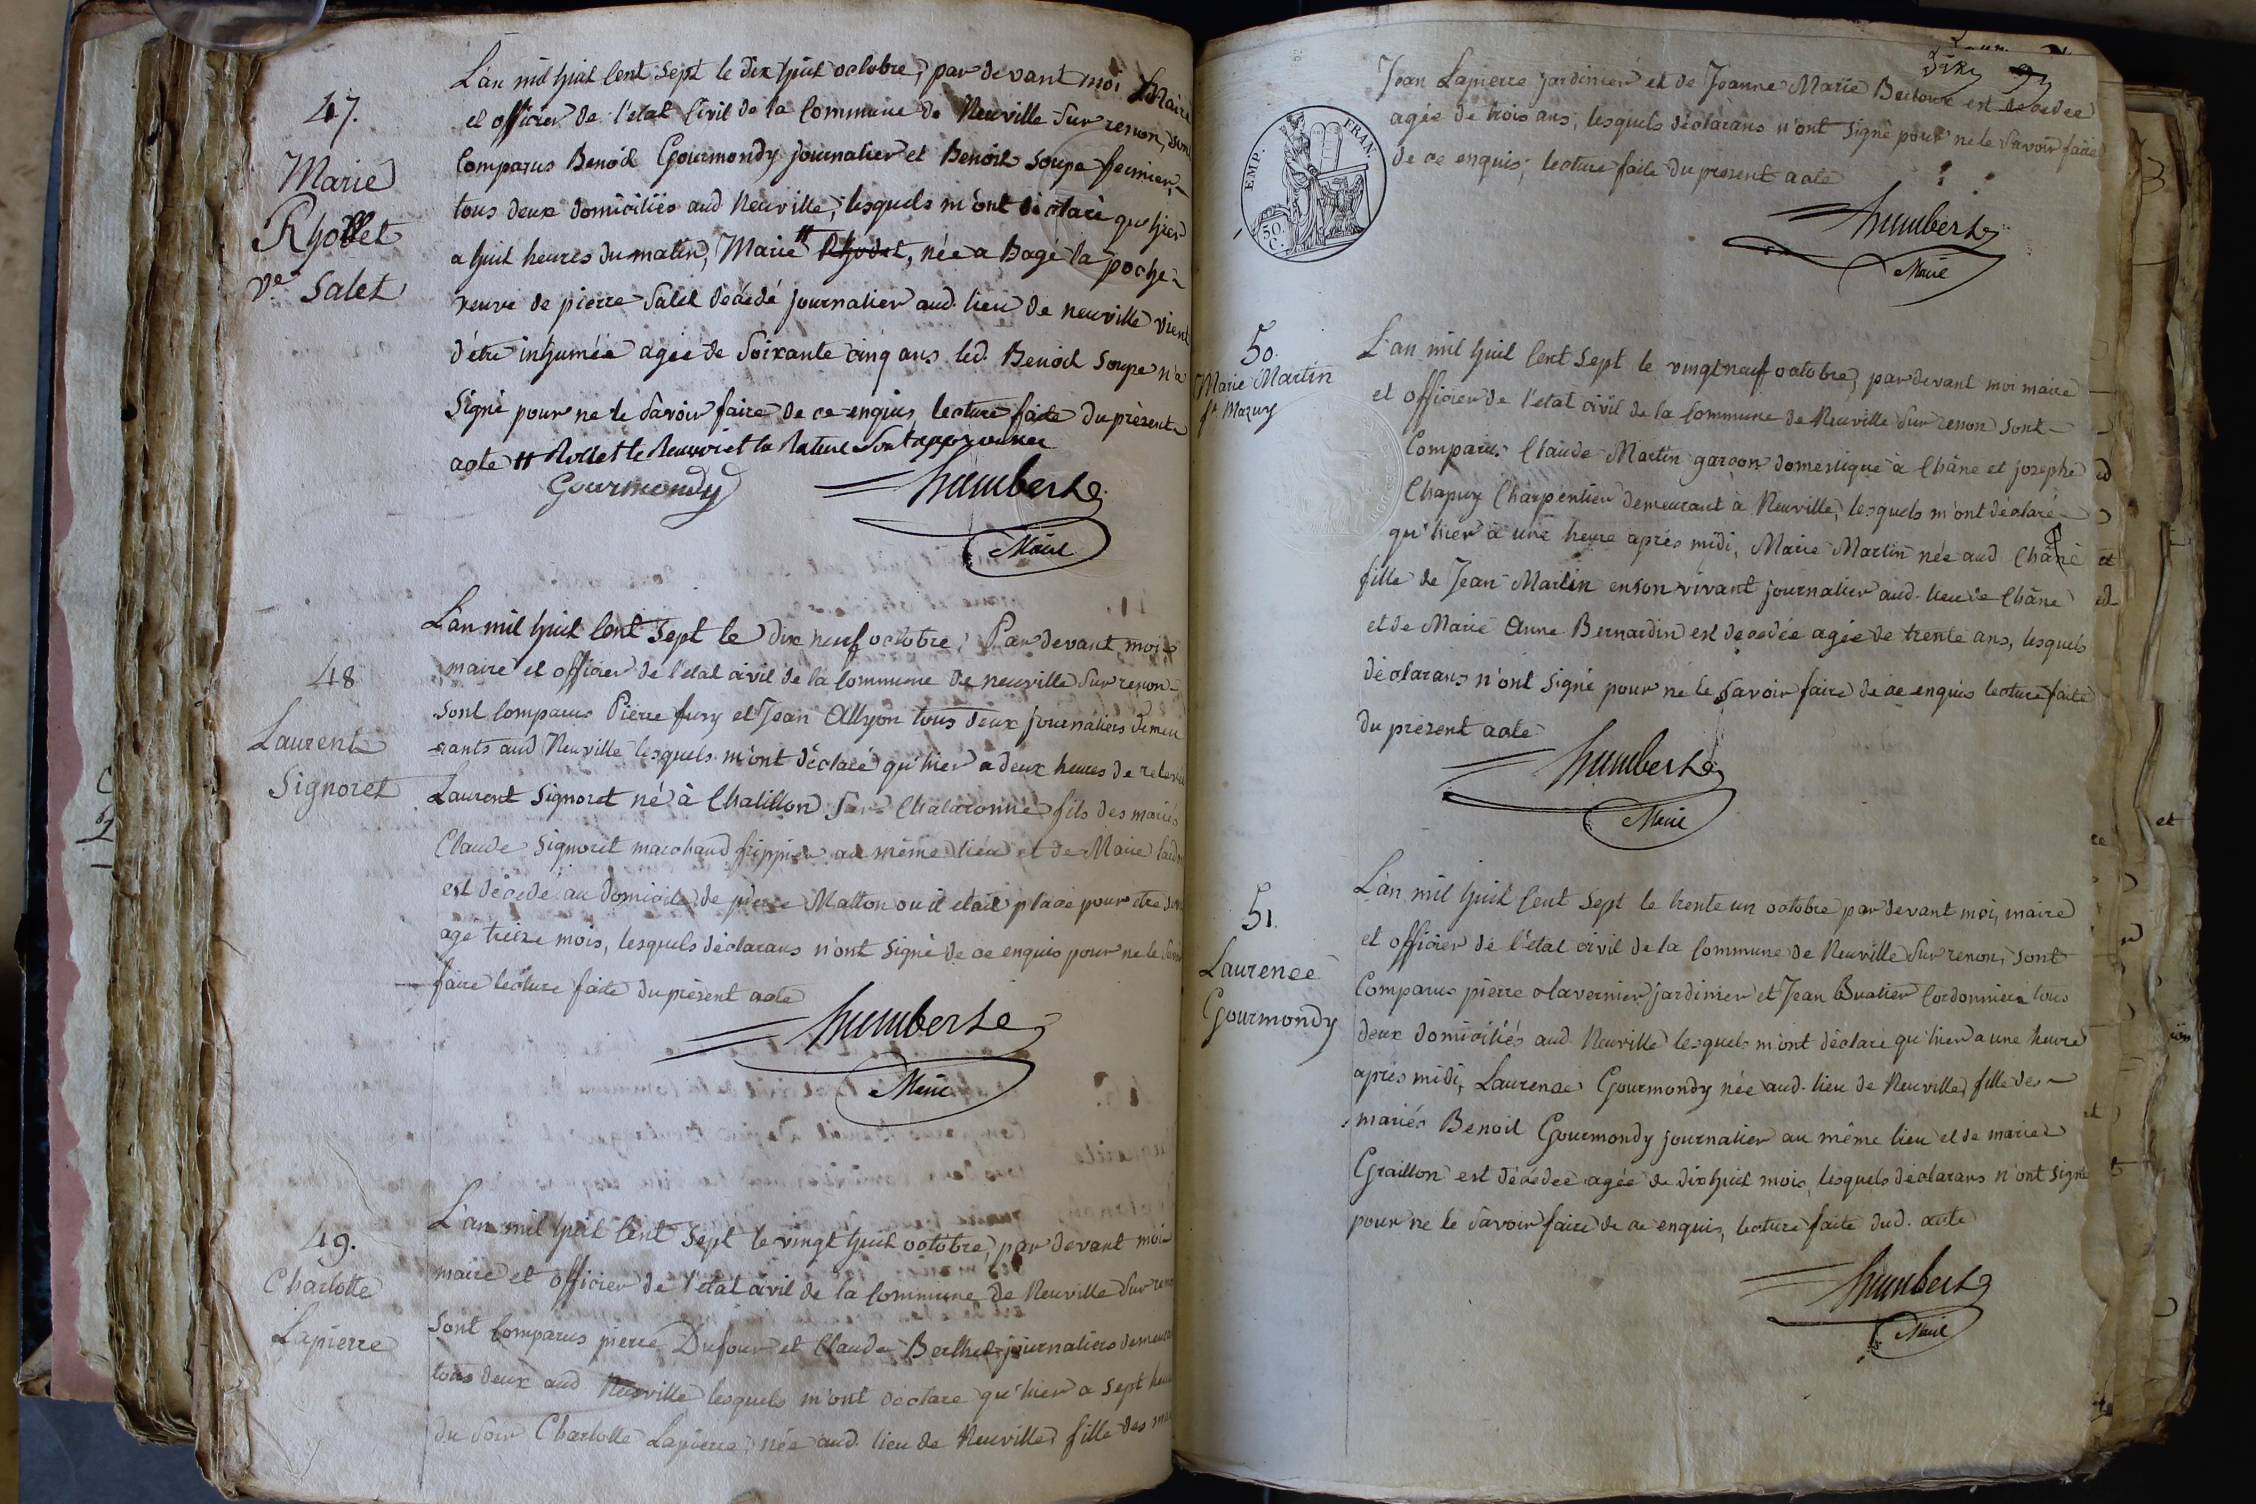 47.
Marie
Rhollet
Ve. Salet
L'an mil huit Cent Sept le dix huit octobre, par devant moi Maire
et officier de l'etat Civil de la Commune de Neuville Sur renon, sont
Comparus Benoit Gourmondy journalier et Benoit Soupe fermier,
tous deux domiciliés aud Neuville, lesquels m'ont déclaré qu'hier
a huit heures du matin, Marie # Rhodet, née a Bagé la
veuve de pierre Salet décédé journalier aud. lieu de neuville vient
d'être inhumée agée de Soixante cinq ans led. Benoit Soupe n'a
Signé pour ne le Savoir faire de ce enquis lecture faite du présent
acte # Rollet le Renvoi et la Rature Sont approuvées
Gourmondy
humbert
Maire
48
Laurent
Signoret
L'an mil huit Cent Sept le dix neuf octobre, Par devant moi
maire et officier de l'etat civil de la Commune de neuville Sur renon
sont Comparus Pierre fury et Jean Allyon tous deux journaliers demeu
rants aud Neuville lesquels m'ont déclaré qu'hier a deux heures de relevée
Laurent Signoret né à Chatillon Sur Chalaronne fils des mariés
Claude Signoret marchand frippier au même lieu et de Marie
est décédé au domicile de pierre Matton ou il etait placé pour etre
agé treize mois, lesquels déclarans n'ont Signé de ce enquis pour ne le Savoir
faire lecture faite du présent acte
humbert
Maire
49.
Charlotte
Lapierre
L'an mil huit Cent Sept le vingt huit octobre, par devant moi
maire et officier de l'etat civil de la Commune de Neuville Sur renon
Sont Comparus pierre Dufour et Claude Berthet journaliers demeurant
tous deux aud Neuville lesquels m'ont déclare qu'hier a Sept heures
du Soir Charlotte Lapierre, née aud. lieu de Neuville, fille des mariés
EMP. FRAN.
50 C.
Jean Lapierre jardinier et de Jeanne Marie Bertoux est décedée
agée de trois ans, lesquels déclarans n'ont Signé pour ne le Savoir faire
de ce enquis, lecture faite du présent acte
humbert
Maire
50.
Marie Martin
fe Mazuy
L'an mil huit Cent Sept le vingt neuf octobre, par devant moi maire
et officier de l'etat civil de la Commune de Neuville Sur renon sont
Comparus Claude Martin garçon domestique à Châne et josephe
Chapuy Charpentier demeurant à Neuville, lesquels m'ont déclaré
qu'hier à une heure après midi, Marie Martin née aud Châne
fille de Jean Martin en son vivant journalier aud. lieu de Châne
et de Marie Anne Bernardin est decedée agée de trente ans, lesquels
déclarans n'ont Signé pour ne le Savoir faire de ce enquis lecture faite
du présent acte
humbert
Maire
51.
Laurence
Gourmondy
L'an mil huit Cent Sept le trente un octobre par devant moi, maire
et officier de l'etat civil de la Commune de Neuville Sur renon, sont
Comparus pierre Clavernier jardinier et Jean Buatier Cordonnier tous
deux domiciliés aud Neuville lesquels m'ont déclare qu'hier a une heure
après midi, Laurence Gourmondy née aud. lieu de Neuville, fille des
mariés Benoit Gourmondy journalier au même lieu et de marie
Graillon est décédée agée de dix huit mois, lesquels déclarans n'ont Signé
pour ne le Savoir faire de ce enquis, lecture faite dud. acte
humbert
Maire